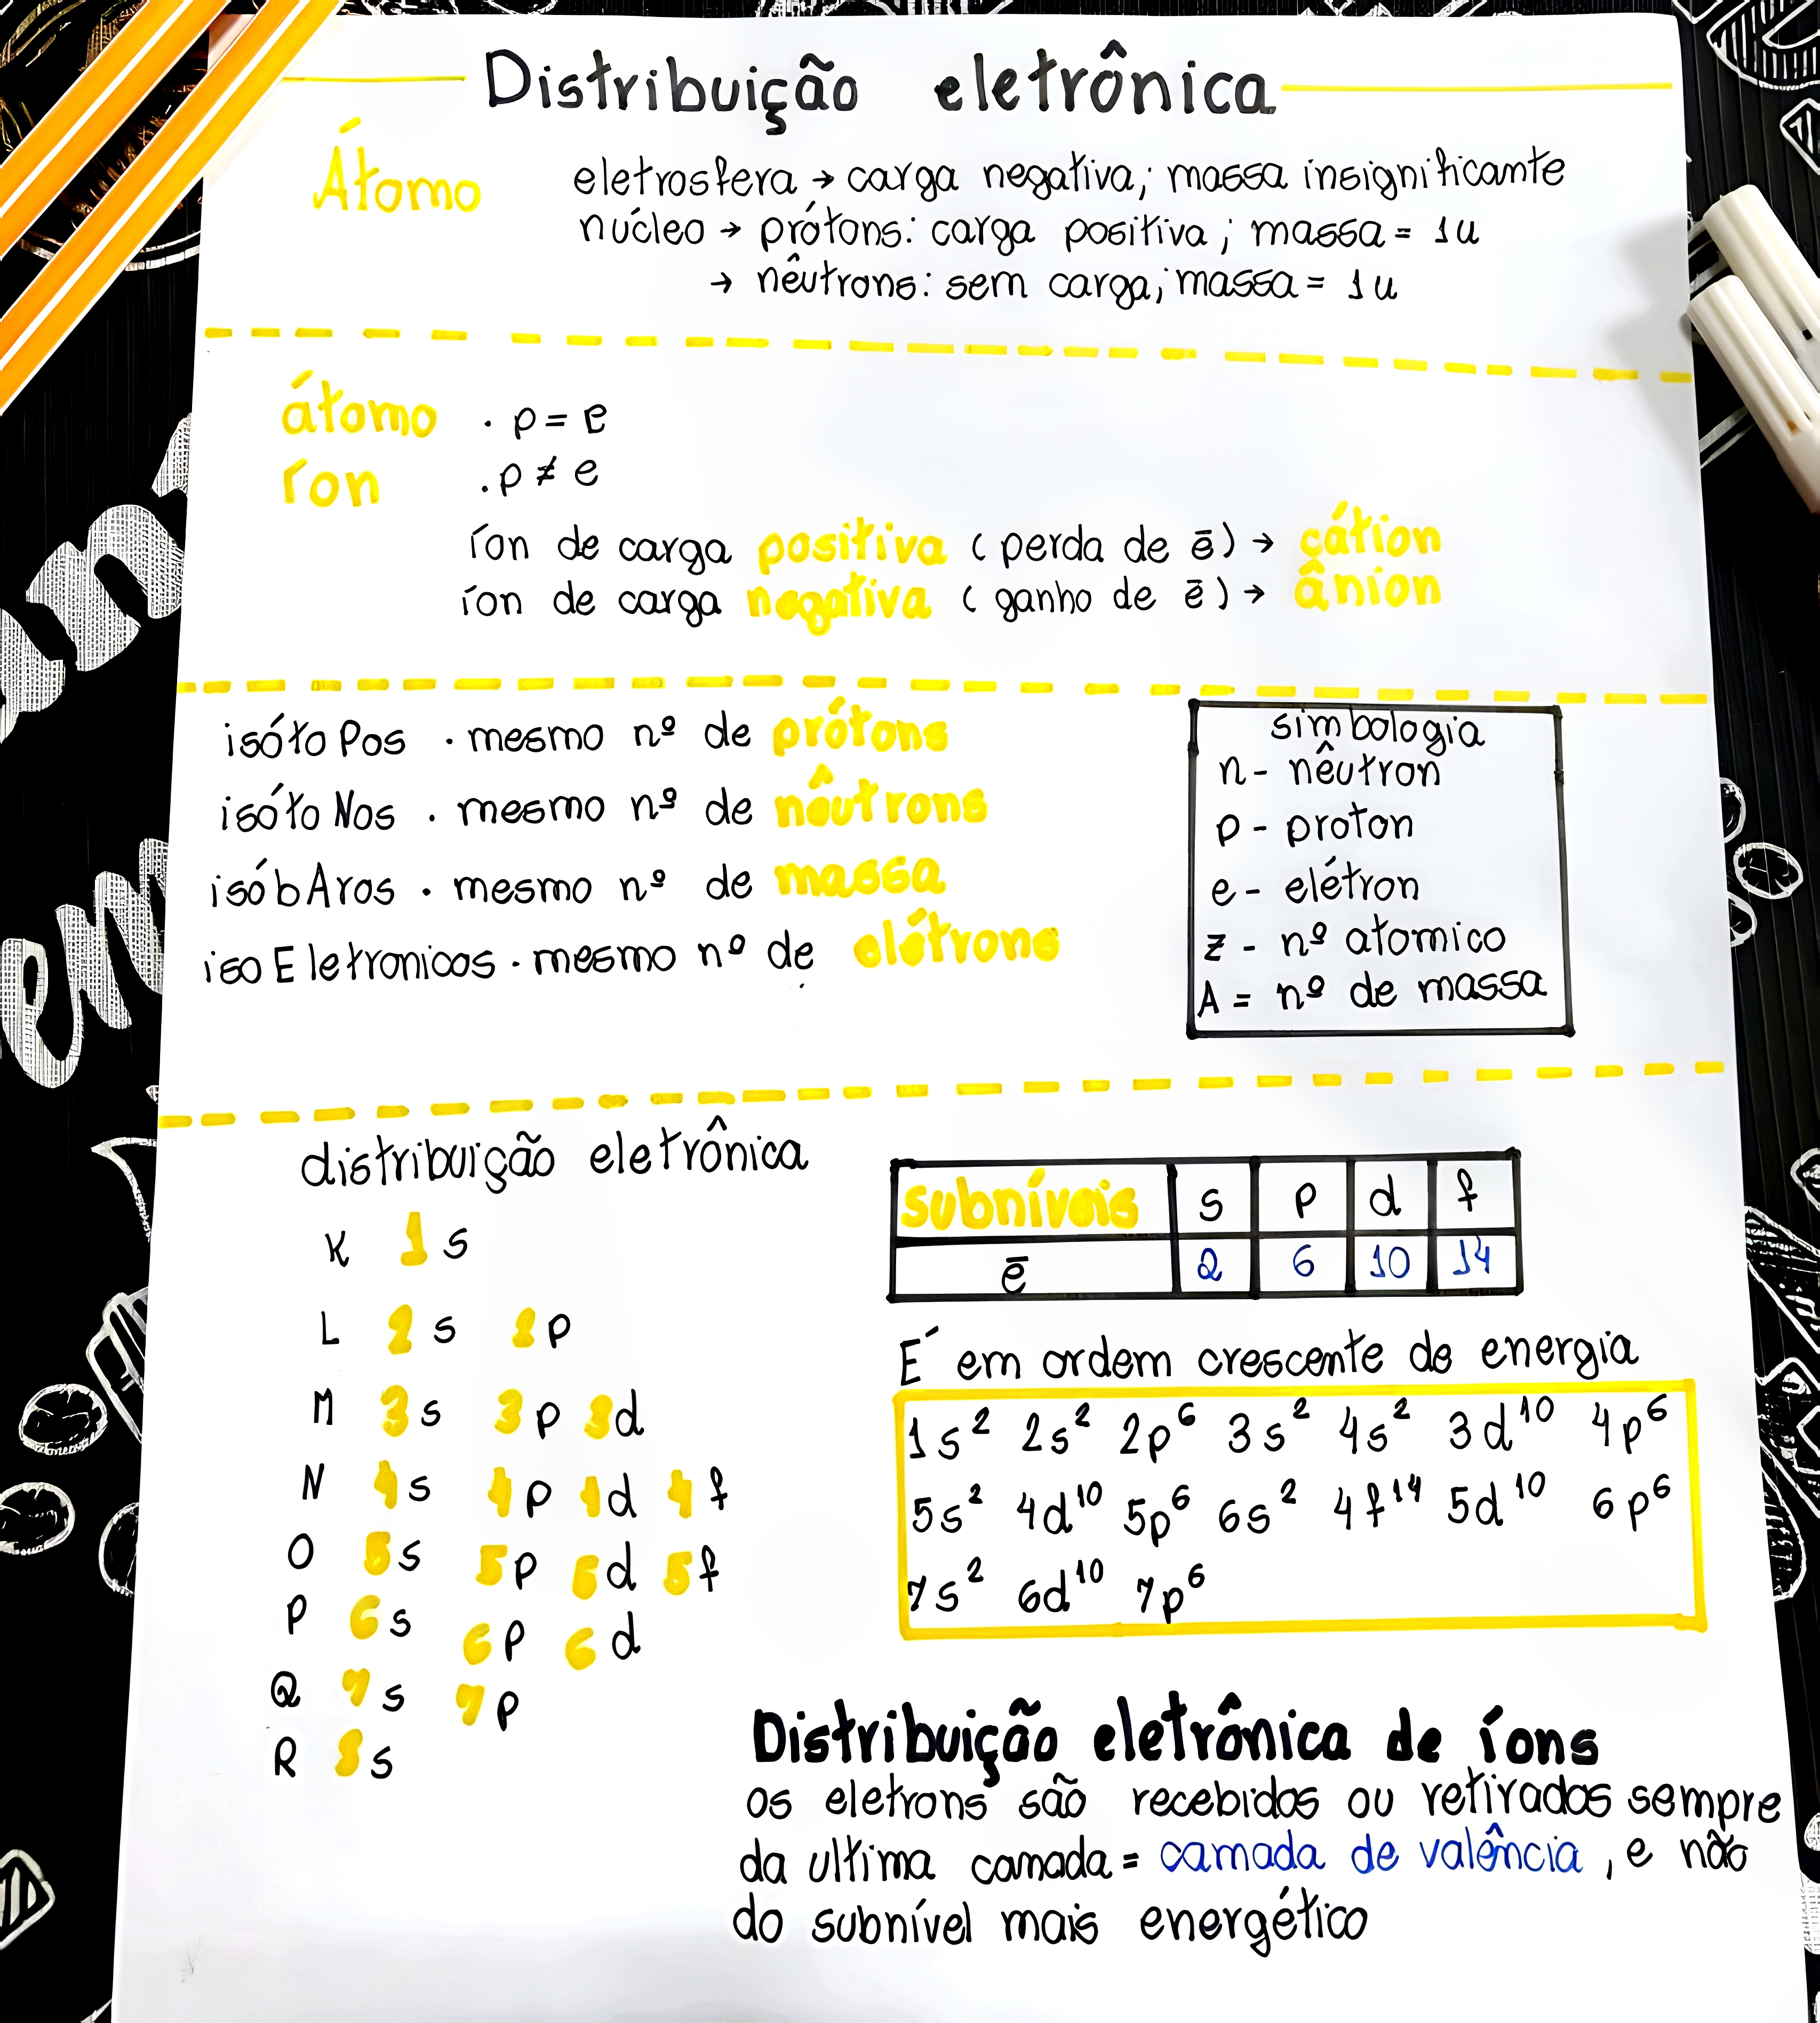 Distribuição eletrônica
Átomo
eletrosfera → carga negativa; massa insignificante
núcleo → prótons: carga positiva; massa = 1u
→ nêutrons: sem carga; massa = 1u
átomo . p = e
íon . p ≠ e
íon de carga positiva (perda de ē) → cátion
íon de carga negativa (ganho de ē) → ânion
isótoPos . mesmo nº de prótons
isótoNos . mesmo nº de nêutrons
isóbAros . mesmo nº de massa
isoEletronicos . mesmo nº de elétrons
simbologia
n - nêutron
p - proton
e - elétron
z - nº atomico
A = nº de massa
distribuição eletrônica
K 1s
L 2s 2p
M 3s 3p 3d
N 4s 4p 4d 4f
O 5s 5p 5d 5f
P 6s 6p 6d
Q 7s 7p
R 8s
subníveis s p d f
ē 2 6 10 14
É em ordem crescente de energia
1s² 2s² 2p⁶ 3s² 4s² 3d¹⁰ 4p⁶
5s² 4d¹⁰ 5p⁶ 6s² 4f¹⁴ 5d¹⁰ 6p⁶
7s² 6d¹⁰ 7p⁶
Distribuição eletrônica de íons
os eletrons são recebidos ou retirados sempre
da ultima camada = camada de valência, e não
do subnível mais energético